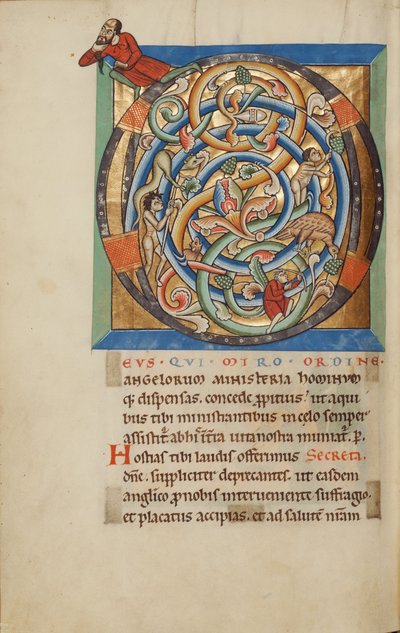 D
EVS · QVI · MIRO · ORDINE ·
ANGELORUM MINISTERIA HOMINUM
q; dispensas. concede ppitius; ut a qui
bus tibi ministrantibus in celo semper
assistit. ab hi in tra vita nostra muniat. P.
Hostias tibi laudis offerimus Secreta.
dne. suppliciter deprecantes. ut easdem
anglico p nobis interveniente suffragio.
et placatus accipias. et ad salutem nram